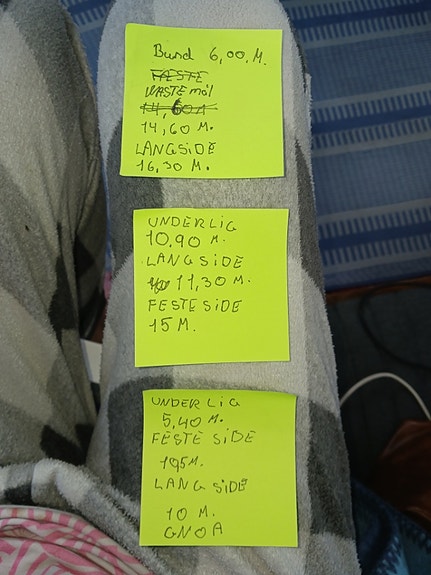 Bund 6,00. M.
FÆSTE
VASTE mål
14,60 M
14,60 M.
LANGSiDE
16,30 M.
UNDERLIG
10,90 M.
LANGSiDE
11,30 M.
FESTE SIDE
15 M.
UNDERLIG
5,40 M.
FESTE SIDE
10,5 M.
LANG SiDE
10 M.
GNOA